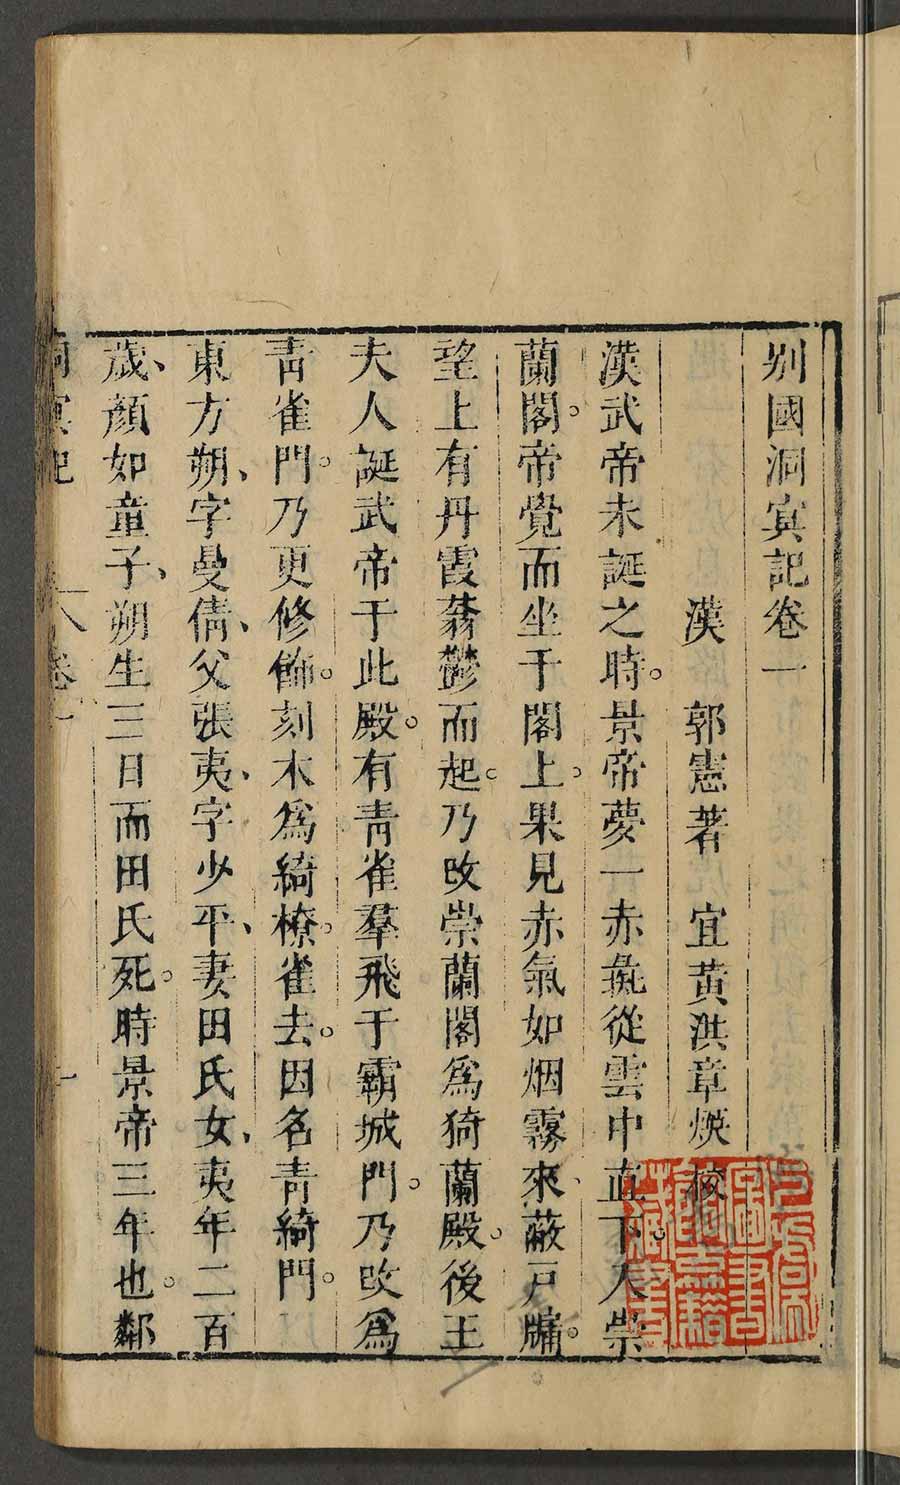 別國洞冥記卷一
漢 郭憲著 宜黃洪章煐校
漢武帝未誕之時景帝夢一赤彘從雲中直下入崇
蘭閣帝覺而坐于閣上果見赤氣如烟霧來蔽戸牖
望上有丹霞蓊鬱而起乃改崇蘭閣為猗蘭殿後王
夫人誕武帝于此殿有青雀羣飛于霸城門乃改為
青雀門乃更修飾刻木為綺橑雀去因名青綺門
東方朔字曼倩父張夷字少平妻田氏女夷年二百
歲顏如童子朔生三日而田氏死時景帝三年也鄰
洞冥記 卷一 一